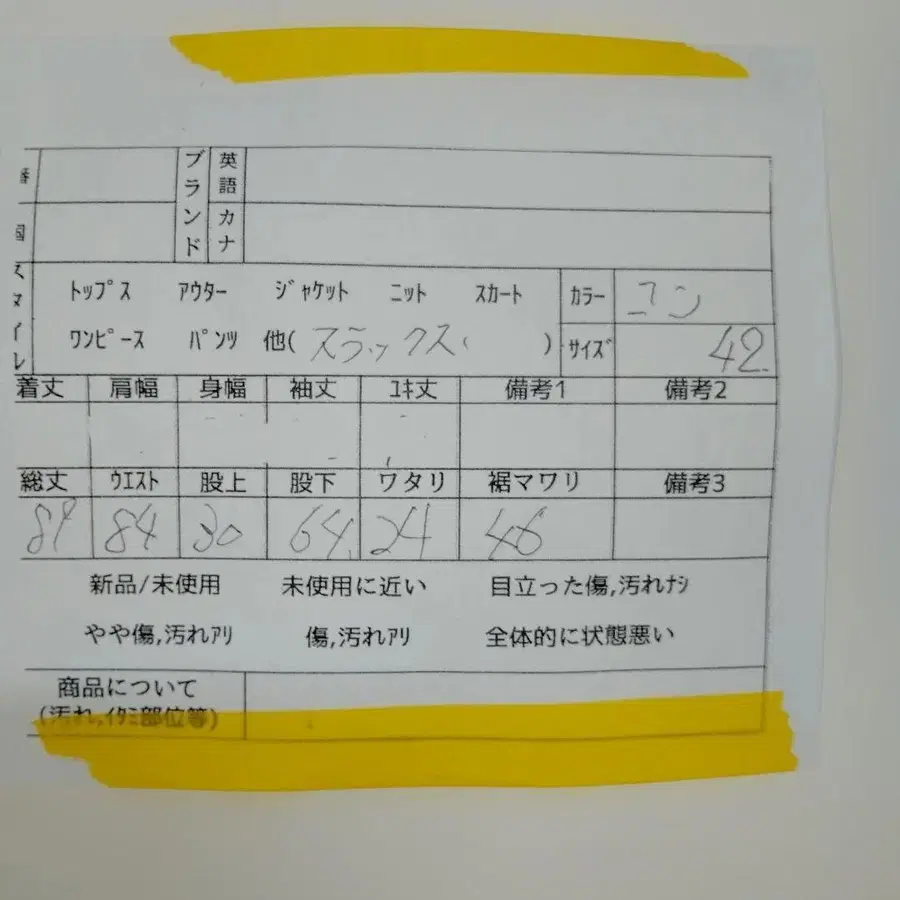 番
ブランド 英語
国 カナ
スタイル トップス アウター ジャケット ニット スカート カラー コン
ワンピース パンツ 他( スラックス ) サイズ 42
着丈 肩幅 身幅 袖丈 ユキ丈 備考1 備考2
総丈 ウエスト 股上 股下 ワタリ 裾マワリ 備考3
89 84 30 64 24 46
新品/未使用 未使用に近い 目立った傷,汚れナシ
やや傷,汚れアリ 傷,汚れアリ 全体的に状態悪い
商品について
(汚れ,イタミ部位等)